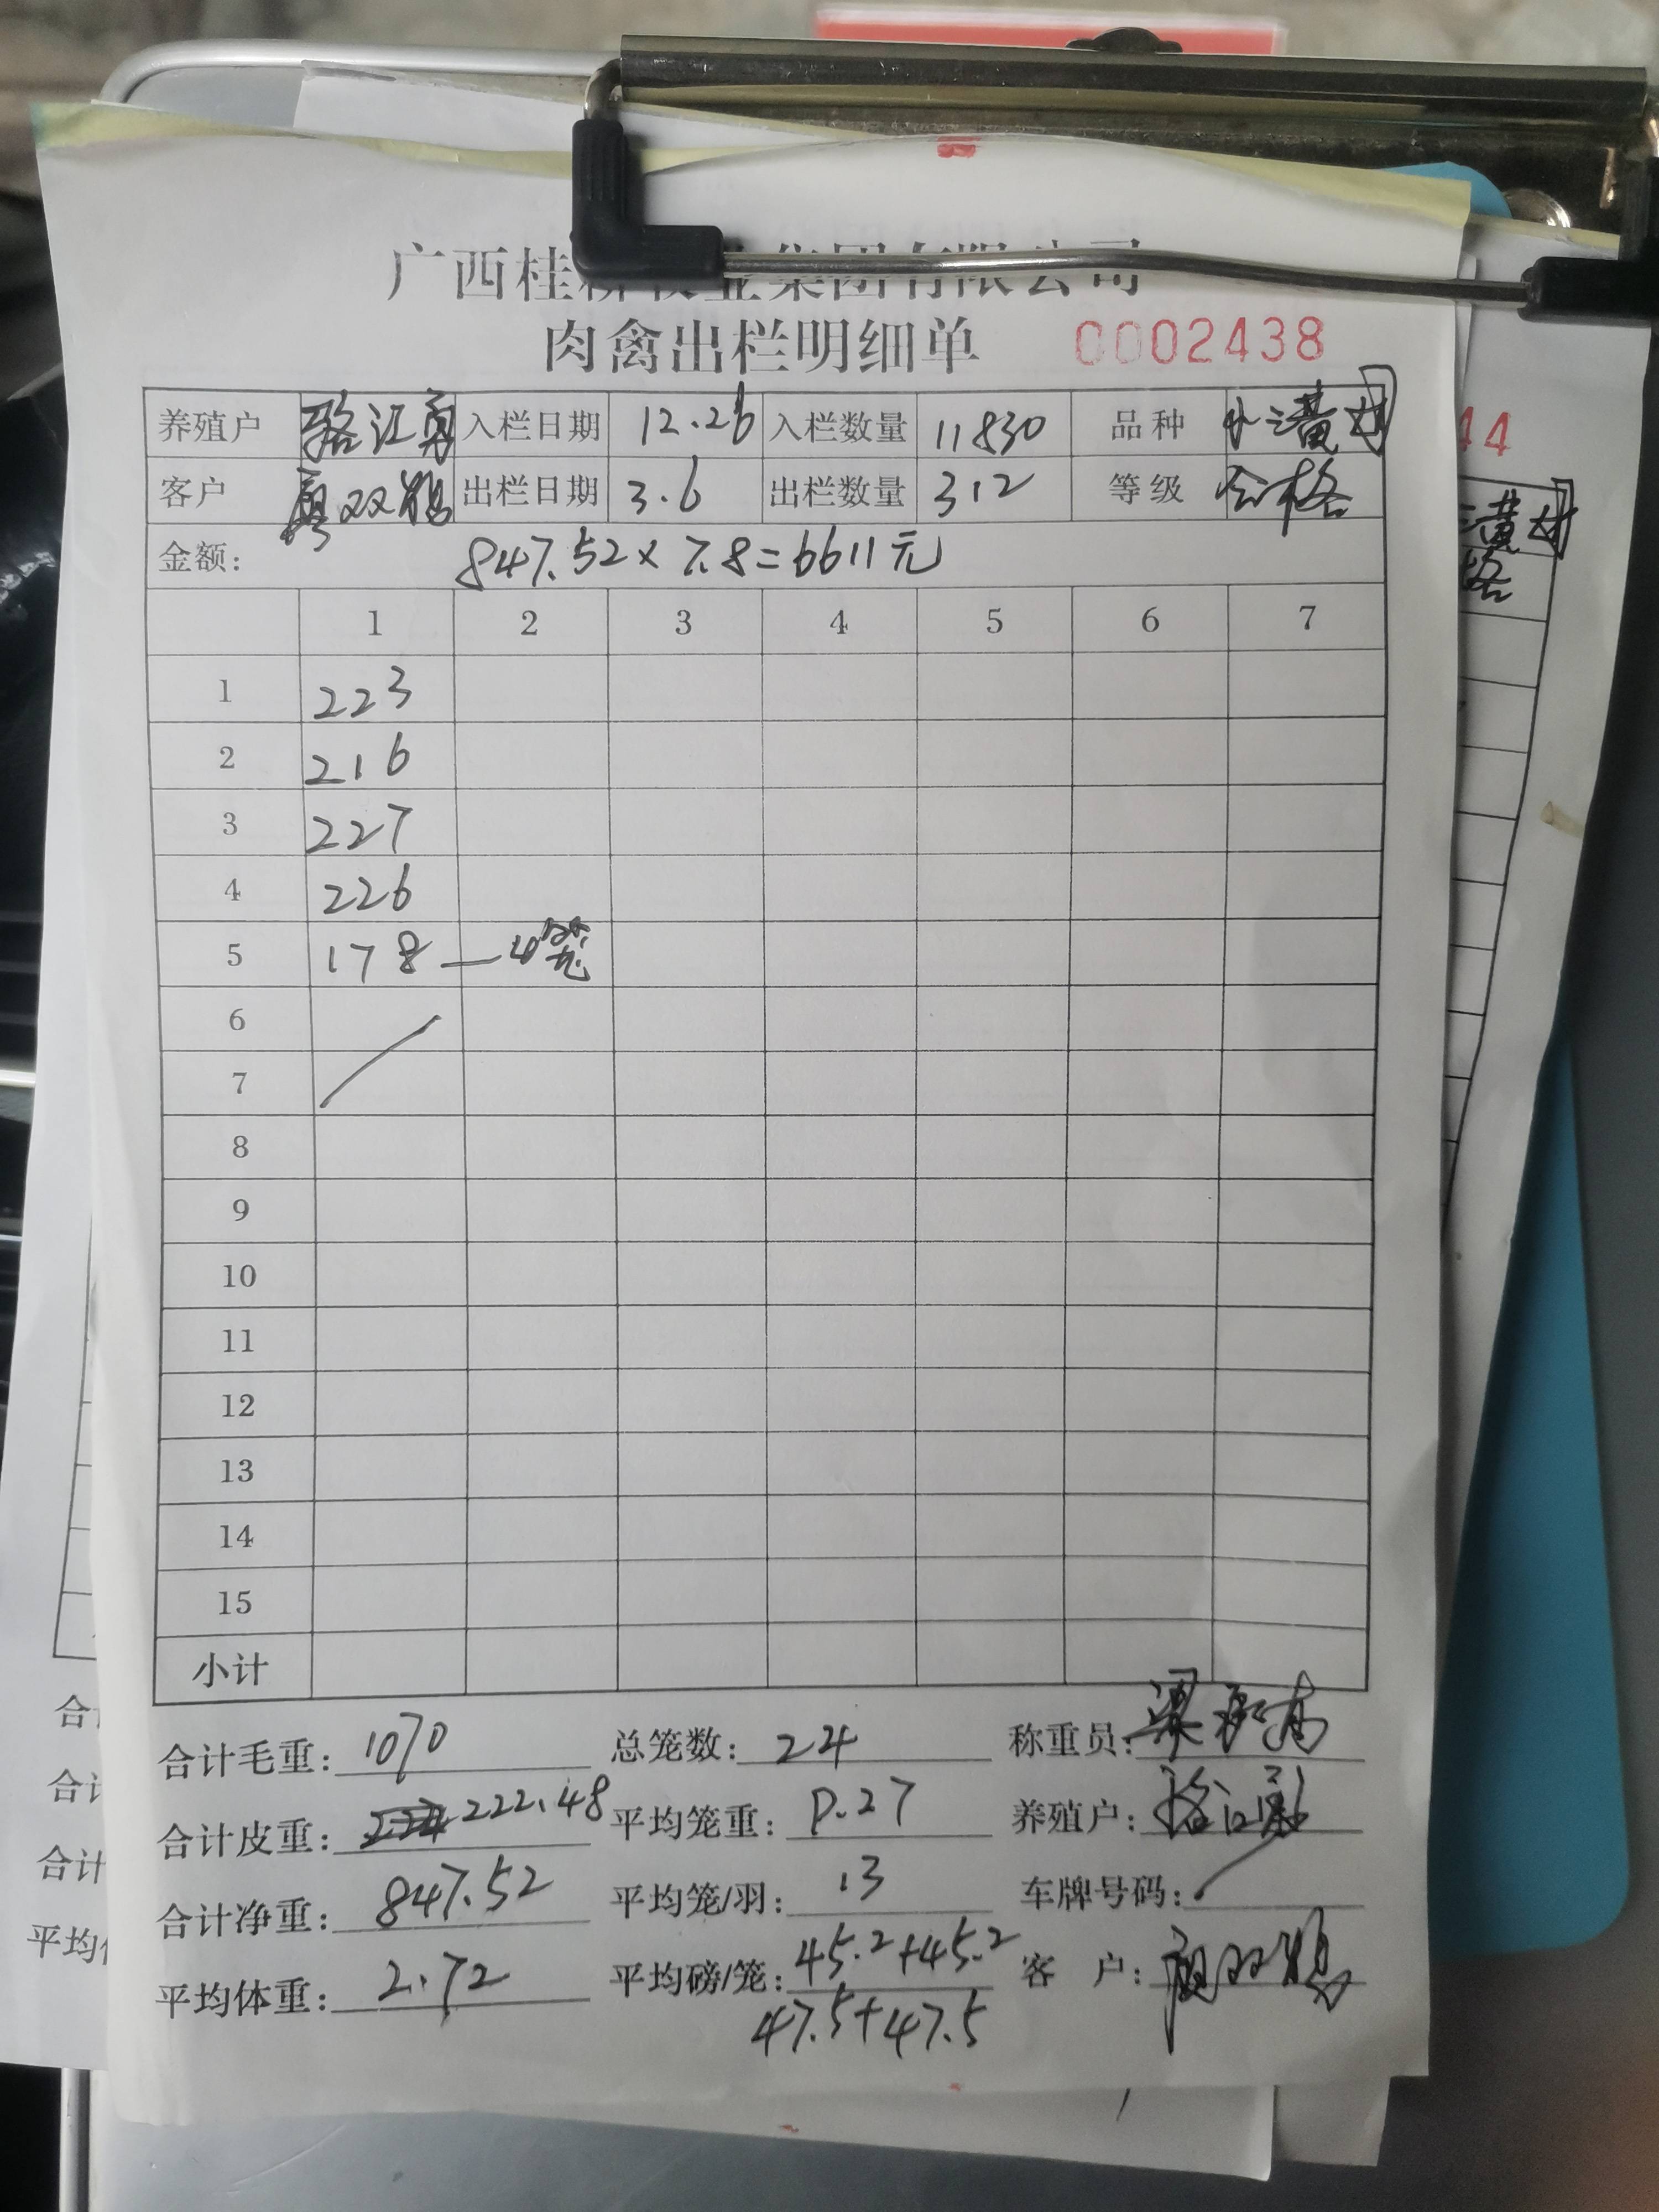 广西桂 业集团有限公司
肉禽出栏明细单 0002438
养殖户 骆江勇 入栏日期 12.26 入栏数量 11830 品种 小三黄
客户 双 出栏日期 3.6 出栏数量 312 等级 合格
金额: 847.52×7.8=6611元
1 2 3 4 5 6 7
1 223
2 216
3 227
4 226
5 178 — 4笼
6
7
8
9
10
11
12
13
14
15
小计
合计毛重: 1070 总笼数: 24 称重员: 梁
合计皮重: 222.48 平均笼重: 9.27 养殖户: 骆江勇
合计净重: 847.52 平均笼/羽: 13 车牌号码:
平均体重: 2.72 平均磅/笼: 45.2+45.2 客 户: 双
47.5+47.5
44
三黄
格
合计
合计
合计
平均